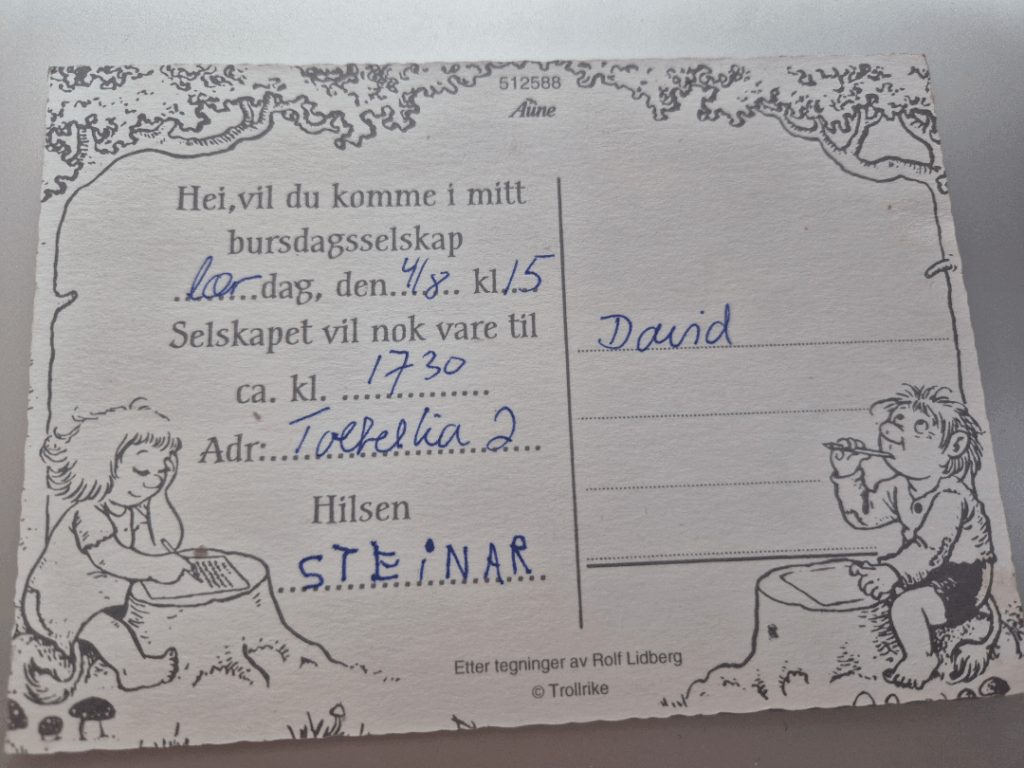 512588
Aune
Hei, vil du komme i mitt
bursdagsselskap
lørdag, den 4/8 kl 15
Selskapet vil nok vare til
ca. kl. 1730
Adr: 2
Hilsen
STEINAR
David
Etter tegninger av Rolf Lidberg
© Trollrike